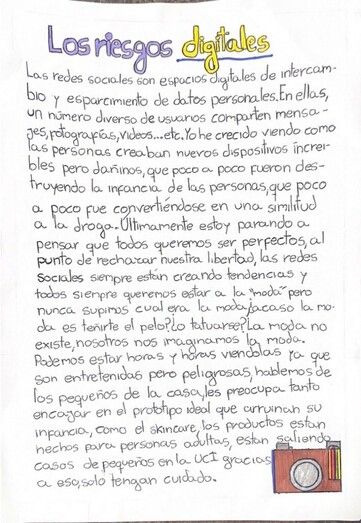 Los riesgos digitales
Las redes sociales son espacios digitales de intercam-
bio y esparcimiento de datos personales. En ellas,
un número diverso de usuarios comparten mensa-
jes, fotografías, videos...etc. Yo he crecido viendo como
las personas creaban nuevos dispositivos increí-
bles pero dañinos, que poco a poco fueron des-
truyendo la infancia de las personas, que poco
a poco fue convertiéndose en una similitud
a la droga. Últimamente estoy parando a
pensar que todos queremos ser perfectos, al
punto de rechazar nuestra libertad, las redes
sociales siempre están creando tendencias y
todos siempre queremos estar a la "moda" pero
nunca supimos cual era la moda ¿acaso la mo-
da es teñirte el pelo? ¿o tatuarse? La moda no
existe, nosotros nos imaginamos la moda.
Podemos estar horas y horas viendolas ya que
son entretenidas pero peligrosas, hablemos de
los pequeños de la casa, les preocupa tanto
encajar en el prototipo ideal que arruinan su
infancia, como el skincare, los productos estan
hechos para personas adultas, estan saliendo
casos de pequeños en la UCI gracias
a eso, solo tengan cuidado.